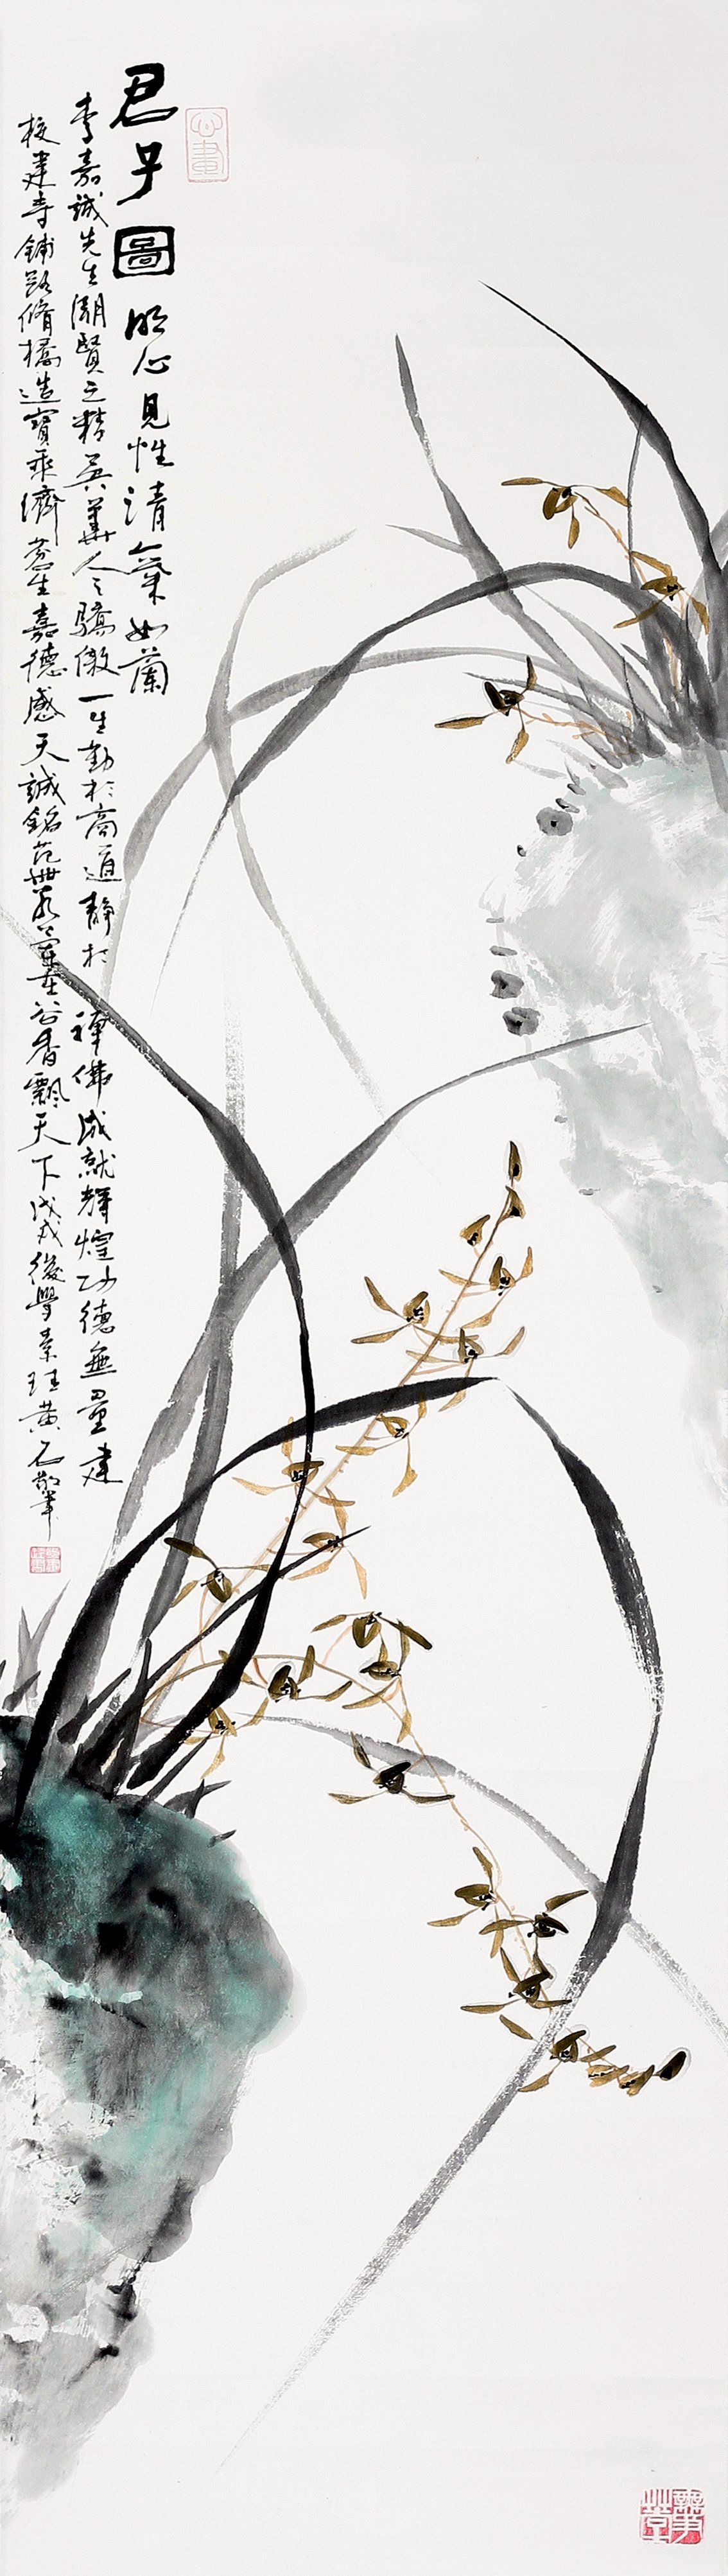 君子圖 明心見性清氣如蘭
李嘉誠先生潮賢之精英華人之驕傲一生勤於商道靜於禪佛成就輝煌功德無量建
校建寺鋪路脩橋造寶乘濟蒼生嘉德感天誠銘范世君蘭在谷香飄天下戊戌後學素珪黃石敬筆
心畫